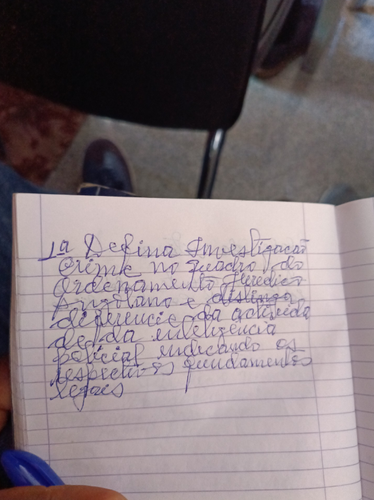 1ª Defina Investigação
Crime no quadro do
Ordenamento Jurídico
Angolano e distinga
diferencie da activida
de da inteligência
policial indicando os
respectivos fundamentos
legaes